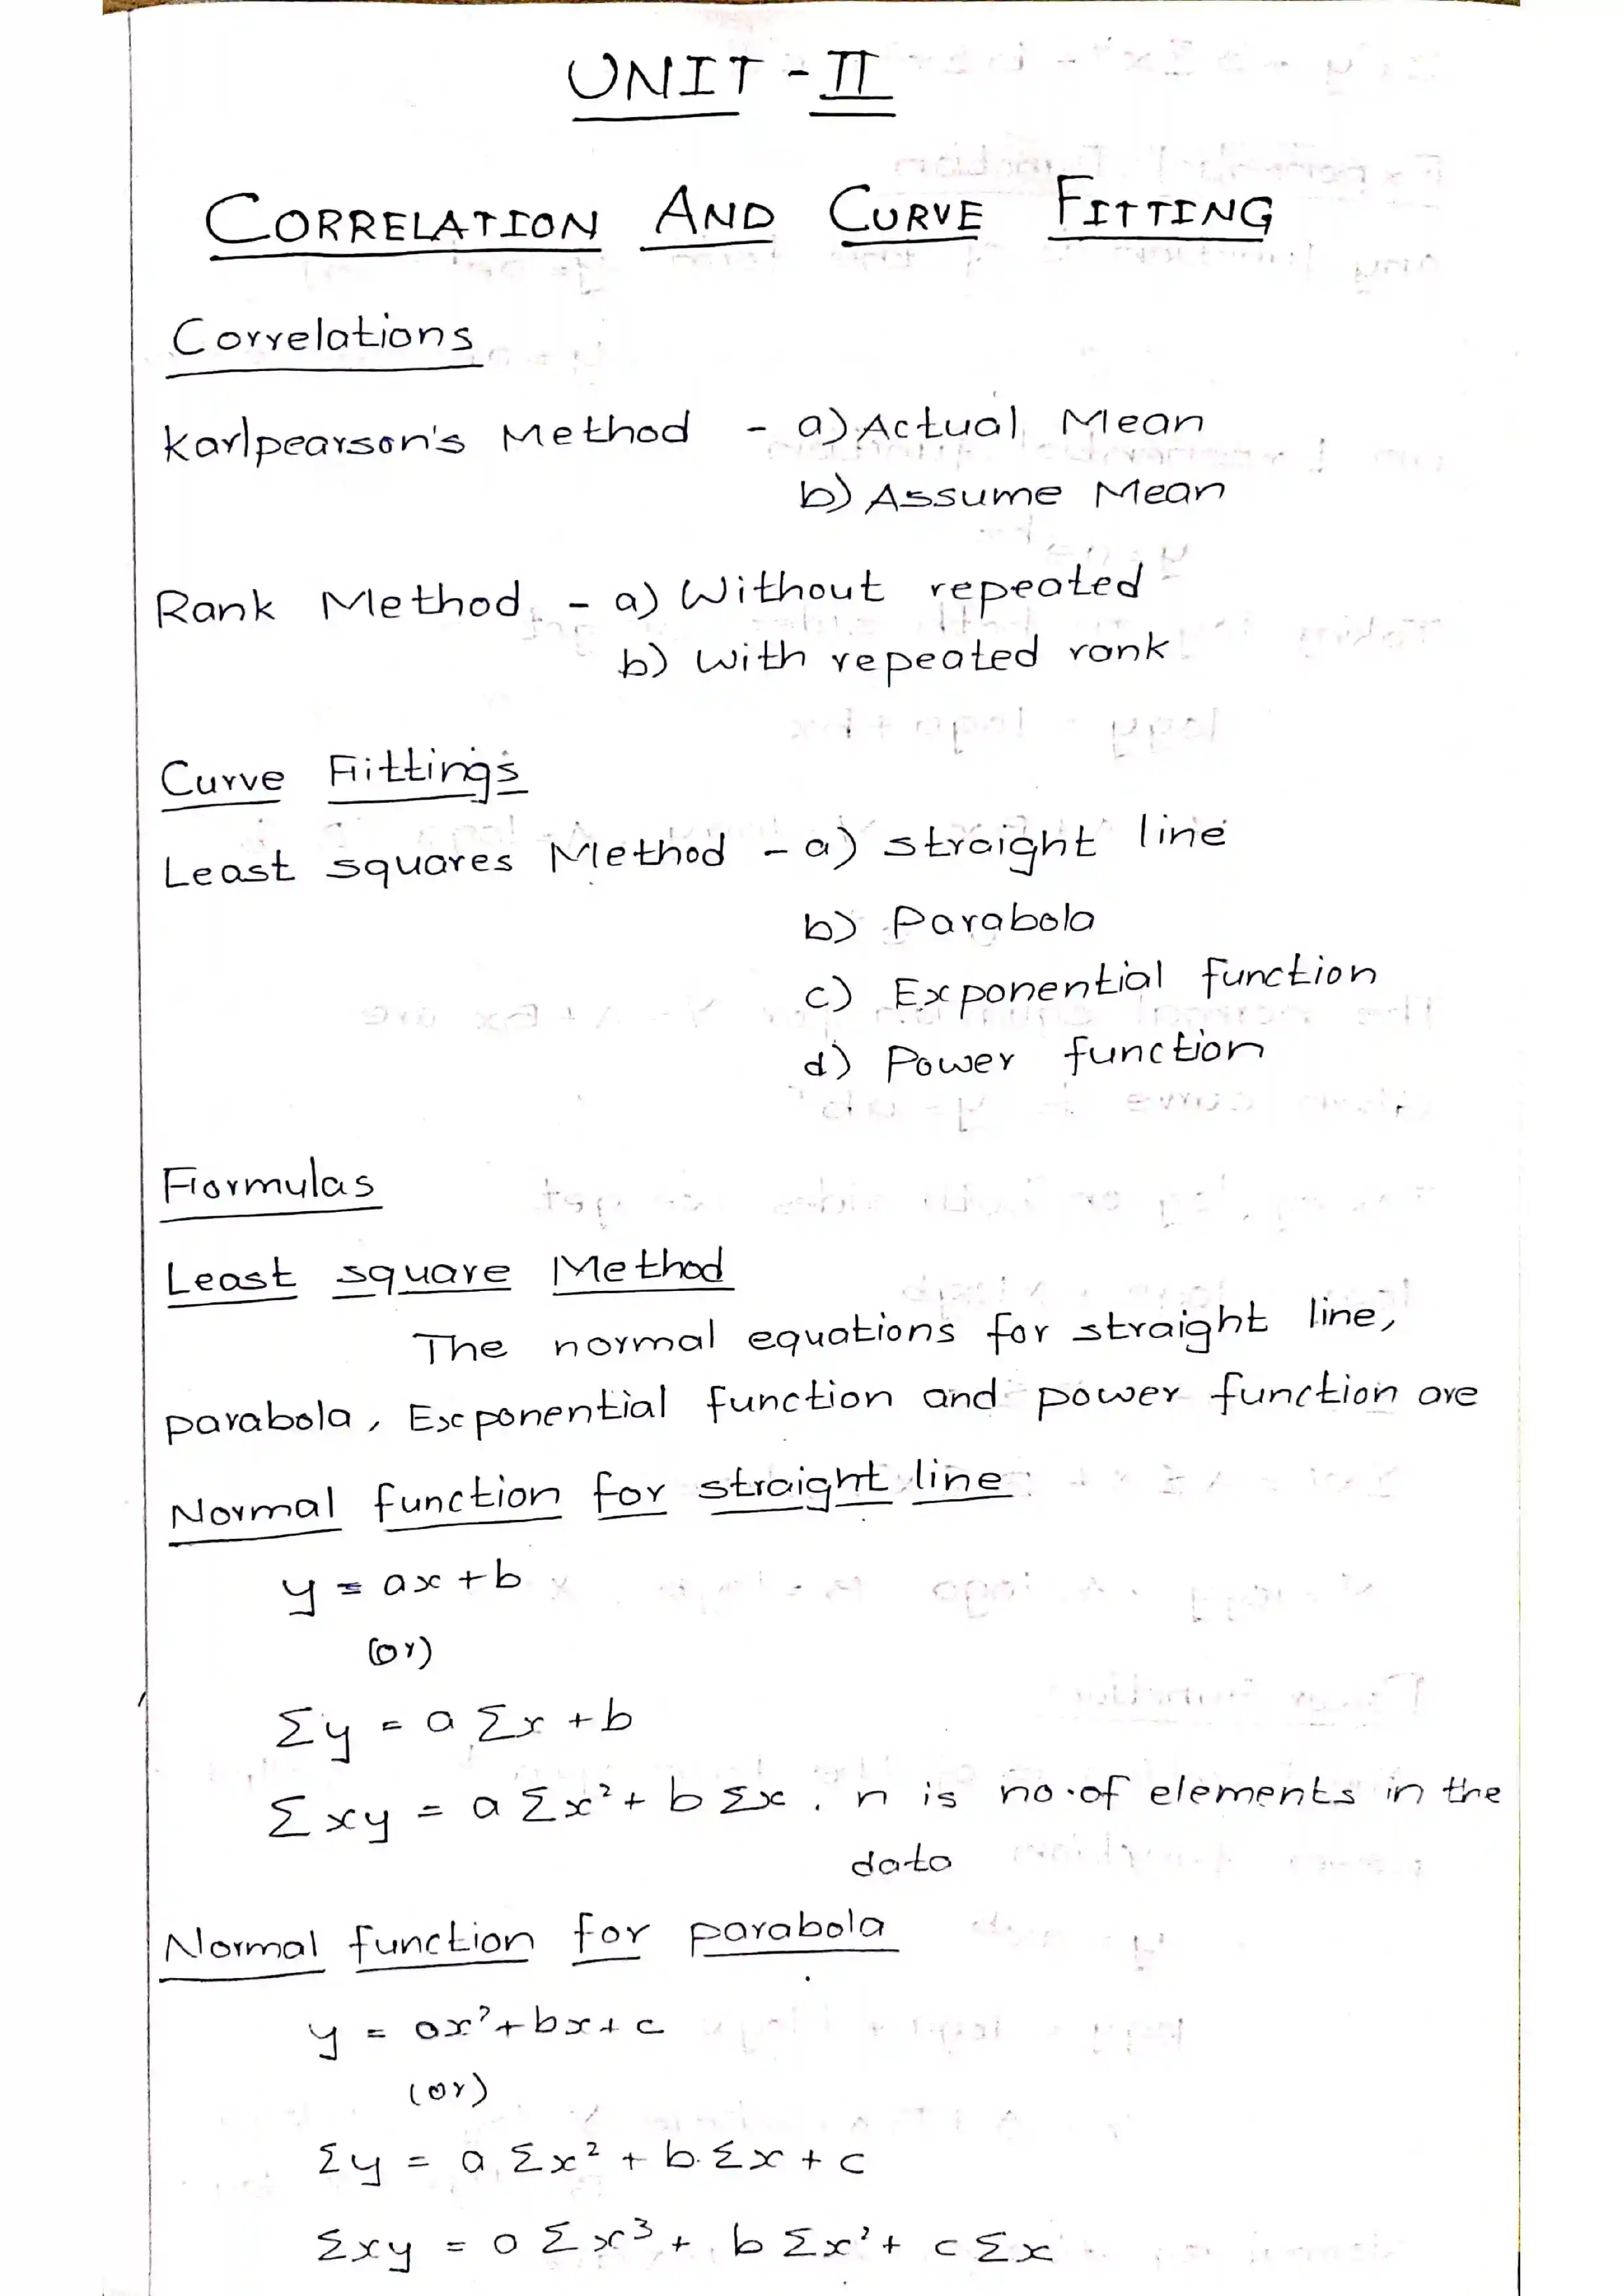 UNIT - II
CORRELATION AND CURVE FITTING
Correlations
Karlpearson's Method - a) Actual Mean
b) Assume Mean
Rank Method - a) Without repeated
b) With repeated rank
Curve Fittings
Least squares Method - a) straight line
b) Parabola
c) Exponential function
d) Power function
Formulas
Least square Method
The normal equations for straight line,
parabola, Exponential function and power function are
Normal function for straight line
y = ax + b
(or)
Σy = a Σx + b
Σxy = a Σx² + b Σx . n is no. of elements in the
data
Normal function for parabola
y = ax² + bx + c
(or)
Σy = a Σx² + b Σx + c
Σxy = a Σx³ + b Σx² + c Σx